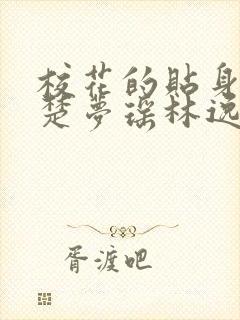 校花的贴身
楚梦瑶林逸
胥渡吧